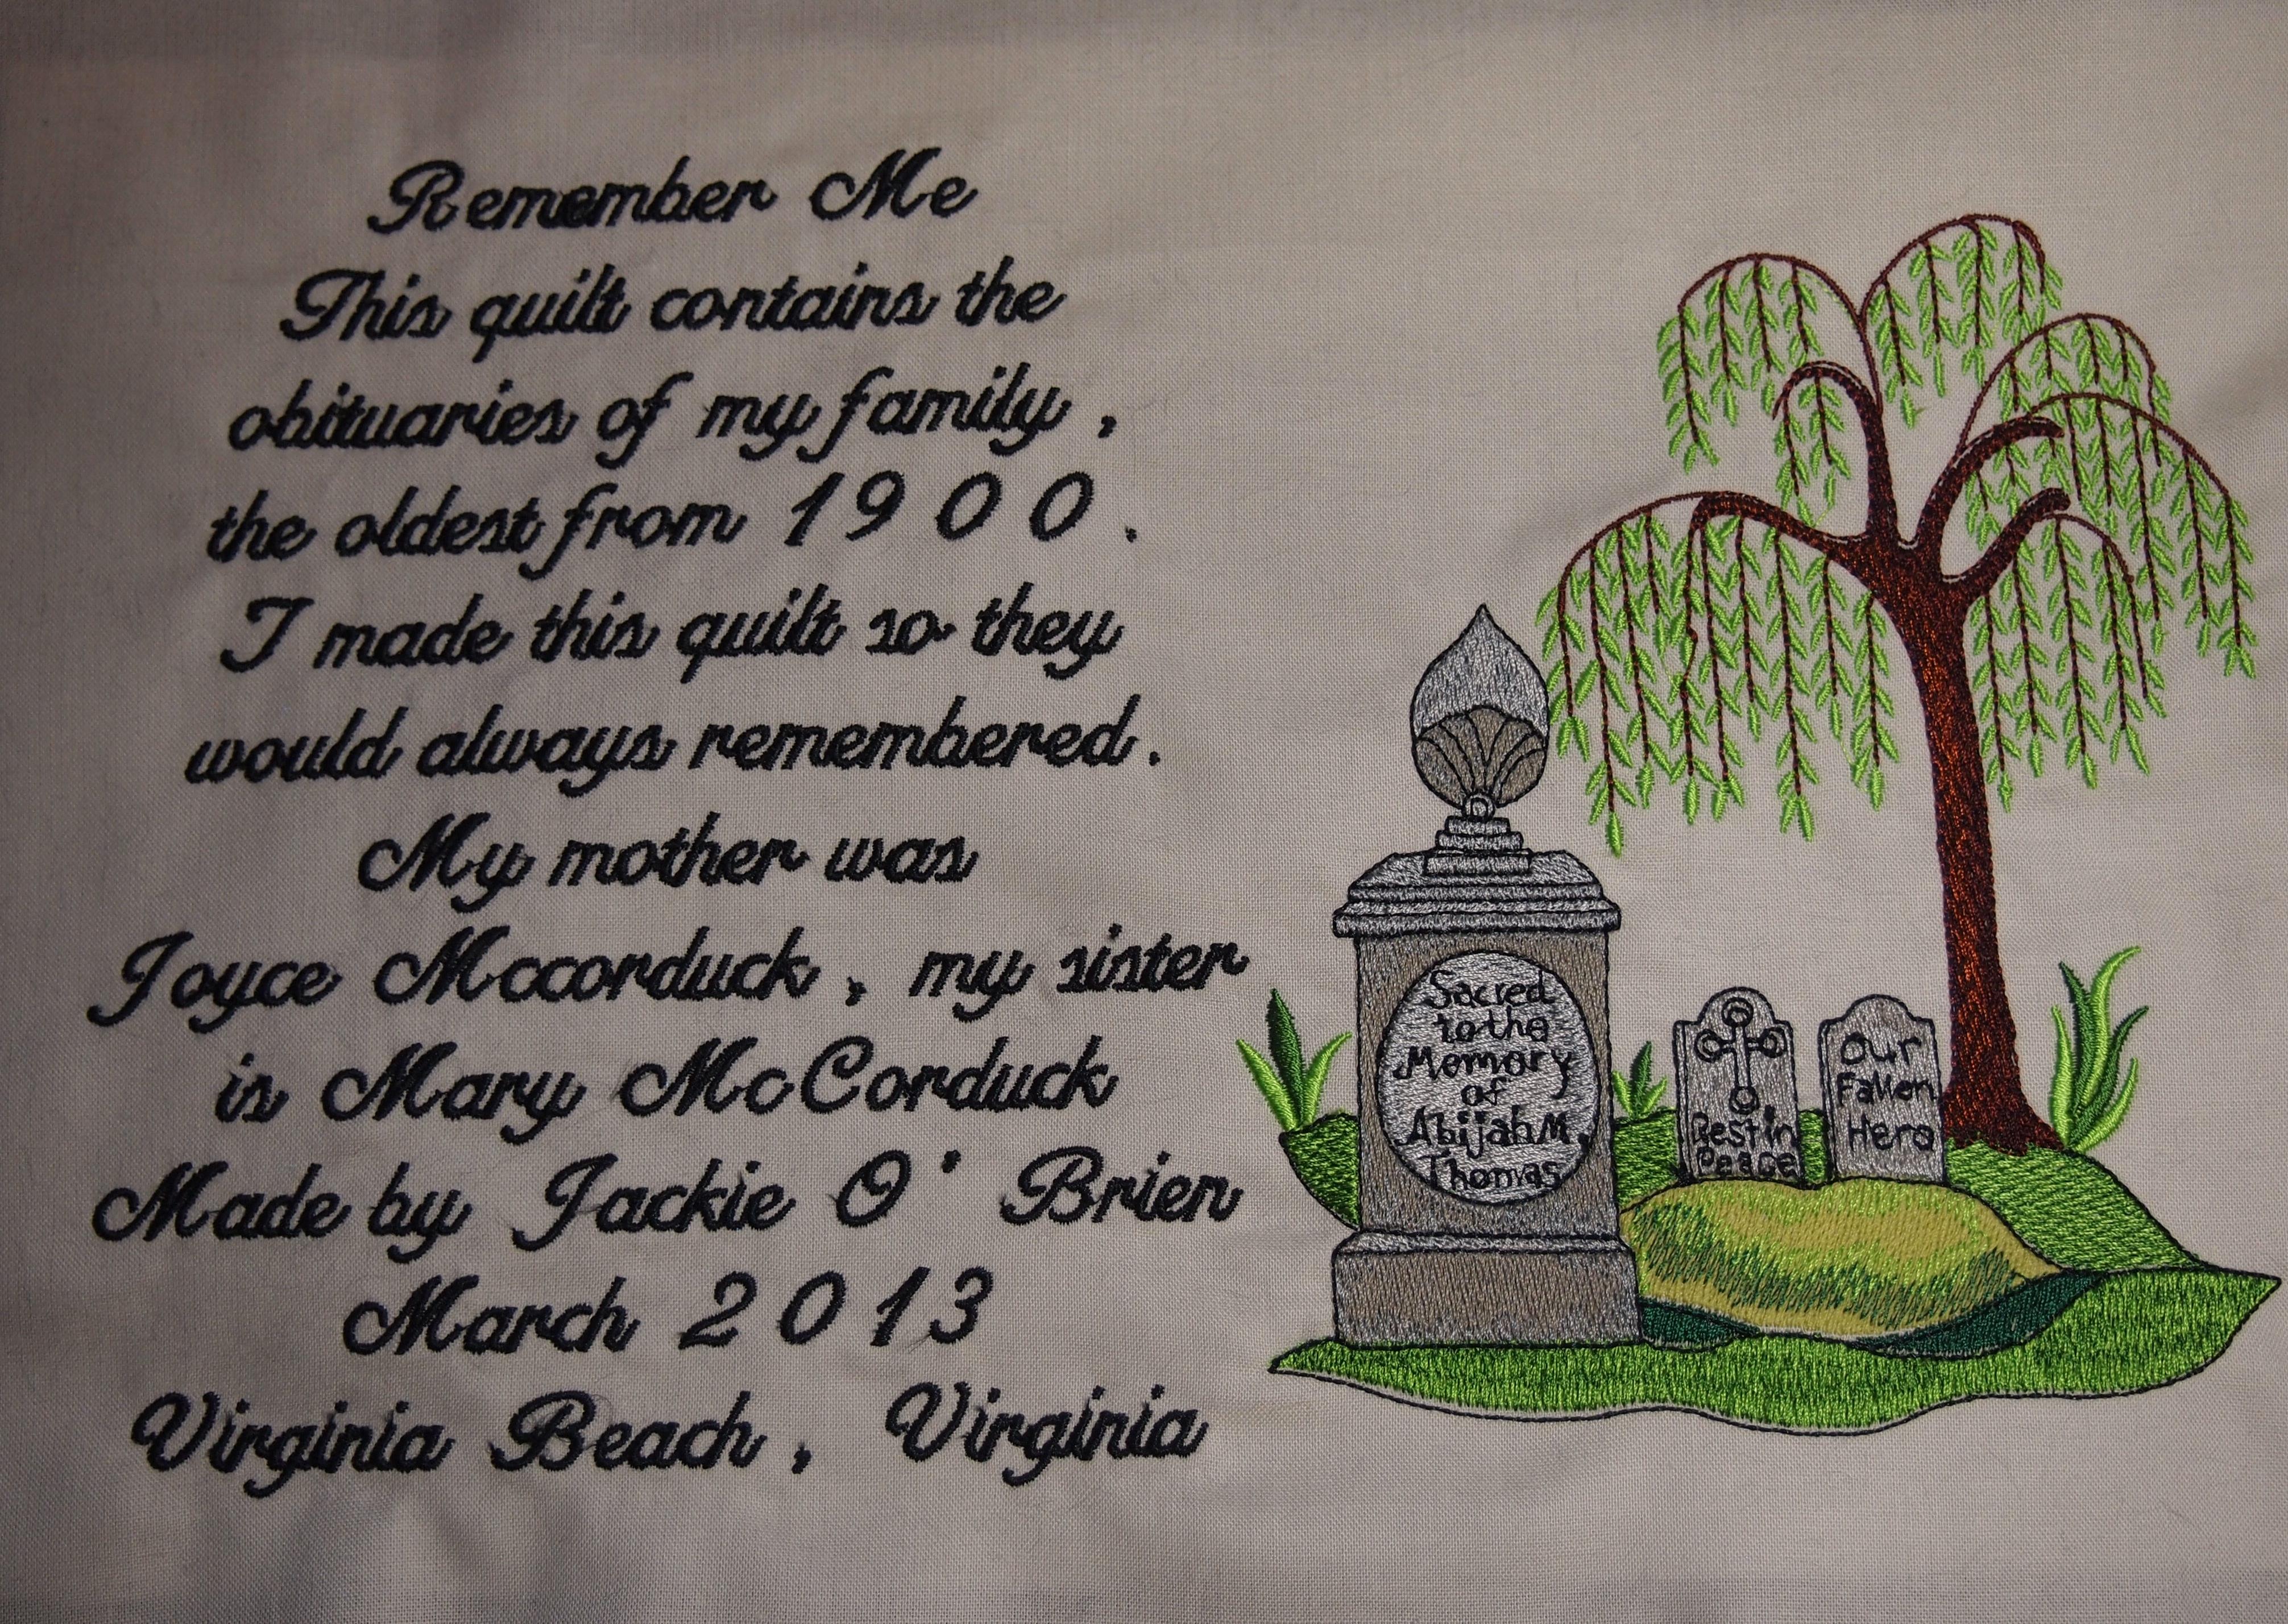 Remember Me
This quilt contains the
obituaries of my family,
the oldest from 1900.
I made this quilt so they
would always remembered.
My mother was
Joyce Mccorduck, my sister
is Mary McCorduck
Made by Jackie O'Brien
March 2013
Virginia Beach, Virginia
Sacred
to the
Memory
of
Abijah M.
Thomas
Rest in
Peace
Our
Fallen
Hero